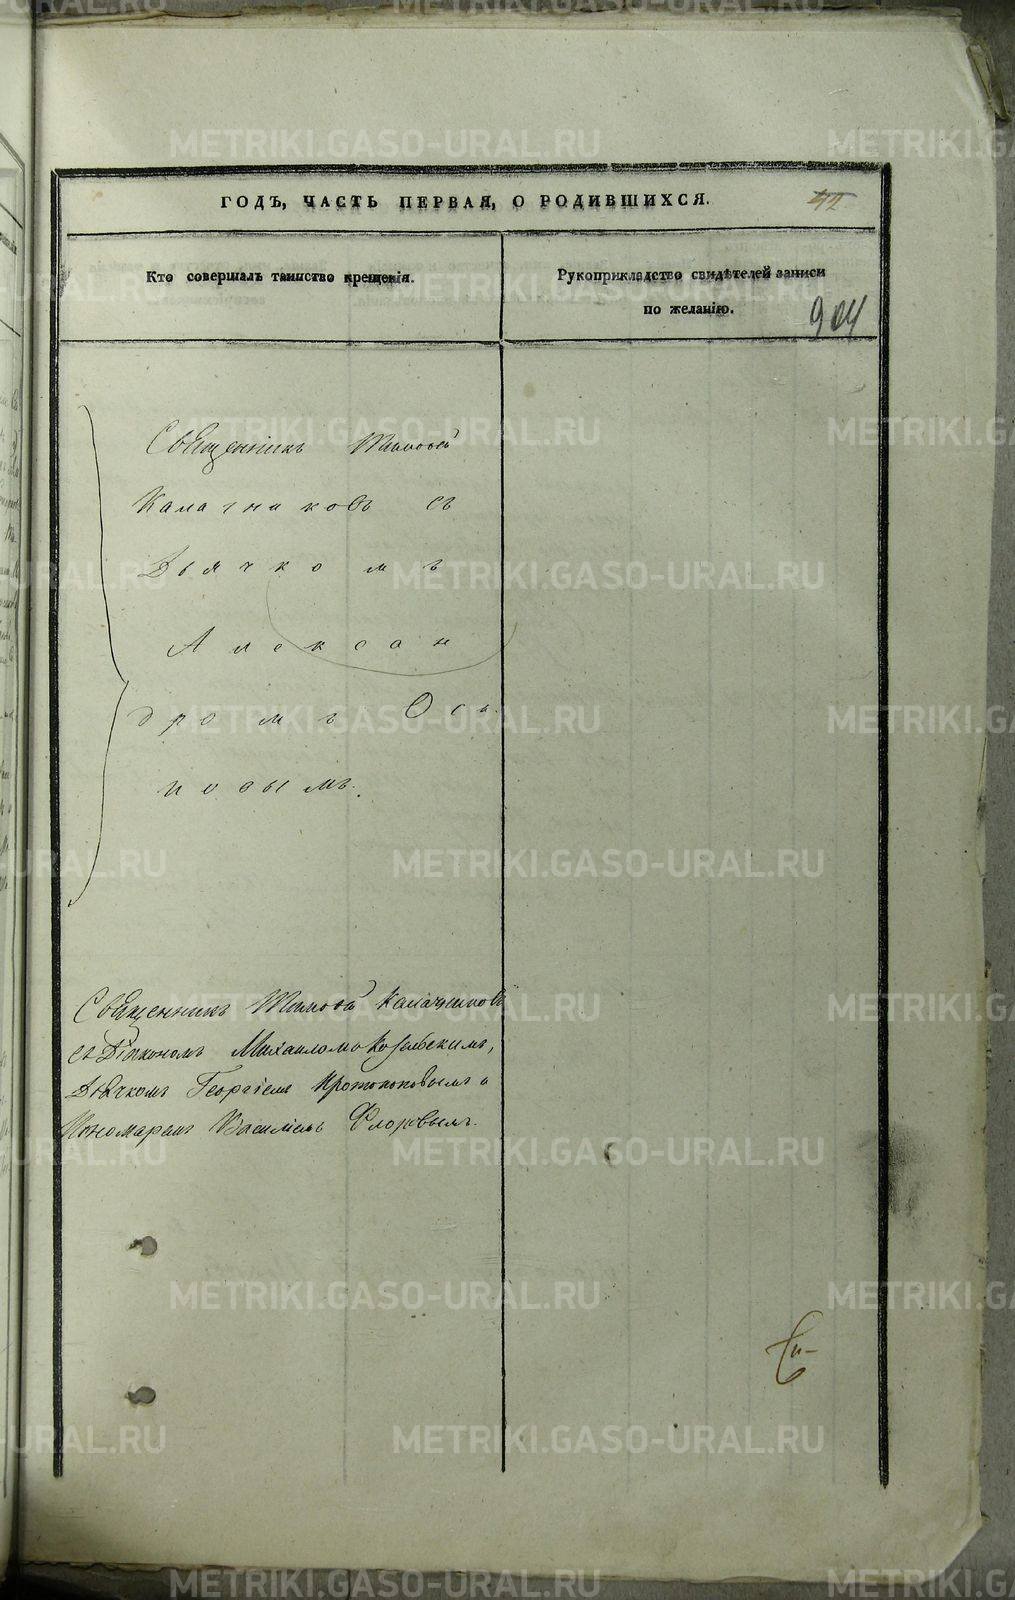 ГОДЪ, ЧАСТЬ ПЕРВАЯ, О РОДИВШИХСЯ.
42
Кто совершалъ таинство крещенія.
Рукоприкладство свидѣтелей записи
по желанію.
904
Священникъ Тимофей
Калачниковъ съ
Дьячкомъ
Алексан
дромъ Оси
повымъ.
Священникъ Тимофей Калачниковъ
съ Діакономъ Михаиломъ
Дьячкомъ Георгіемъ Протопоповымъ и
Пономаремъ Василіемъ Флоровымъ.
METRIKI.GASO-URAL.RU